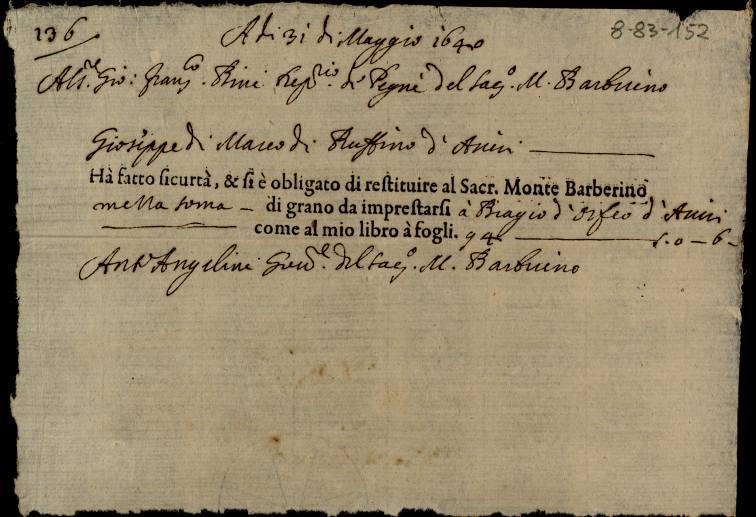 136 A di 31 di Maggio 1640 8-83-152
Al S.r Gio: Franc.co Bini Dep.rio de Pegni del Sac.o M. Barberino
Gioseppe di Marco di Ruffino d'
Hà fatto sicurtà, & si è obligato di restituire al Sacr. Monte Barberino
mezza soma – di grano da imprestarsi à Biagio d'Orfeo d'
come al mio libro à fogli. 94 s. 0 – 6 –
Ant.o Angelini Gov.re del Sac.o M. Barberino